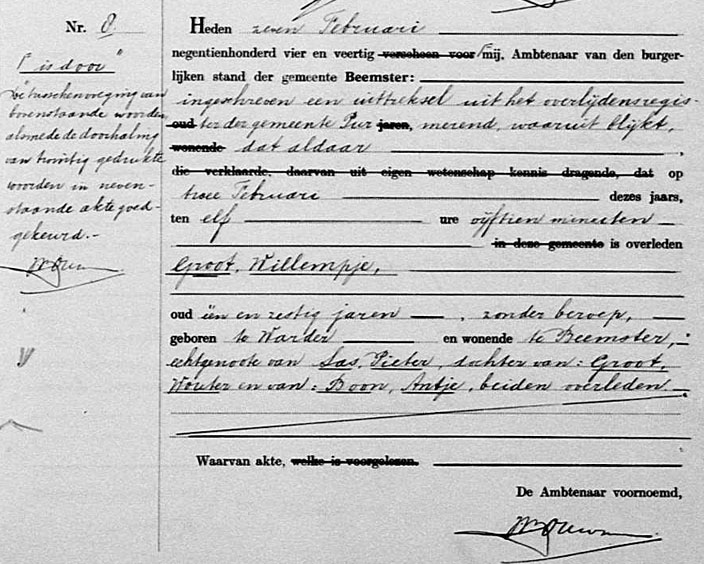 Nr. 8.
" is door"
De tusschenvoeging van
bovenstaande woorden,
alsmede de doorhaling
van twintig gedrukte
woorden in neven-
staande akte goed-
gekeurd.-
Heden zeven Februari
negentienhonderd vier en veertig verscheen voor mij, Ambtenaar van den burger-
lijken stand der gemeente Beemster:
ingeschreven een uittreksel uit het overlijdensregis-
oud ter der gemeente Pur jaren, merend, waaruit blijkt,
wonende dat aldaar
die verklaarde, daarvan uit eigen wetenschap kennis dragende, dat op
twee Februari dezes jaars,
ten elf ure vijftien minuten
in deze gemeente is overleden
Groot, Willempje,
oud één en zestig jaren, zonder beroep,
geboren te Warder en wonende te Beemster,
echtgenoote van Sas, Pieter, dochter van: Groot,
Wouter en van: Boon, Antje, beiden overleden
Waarvan akte, welke is voorgelezen.
De Ambtenaar voornoemd,